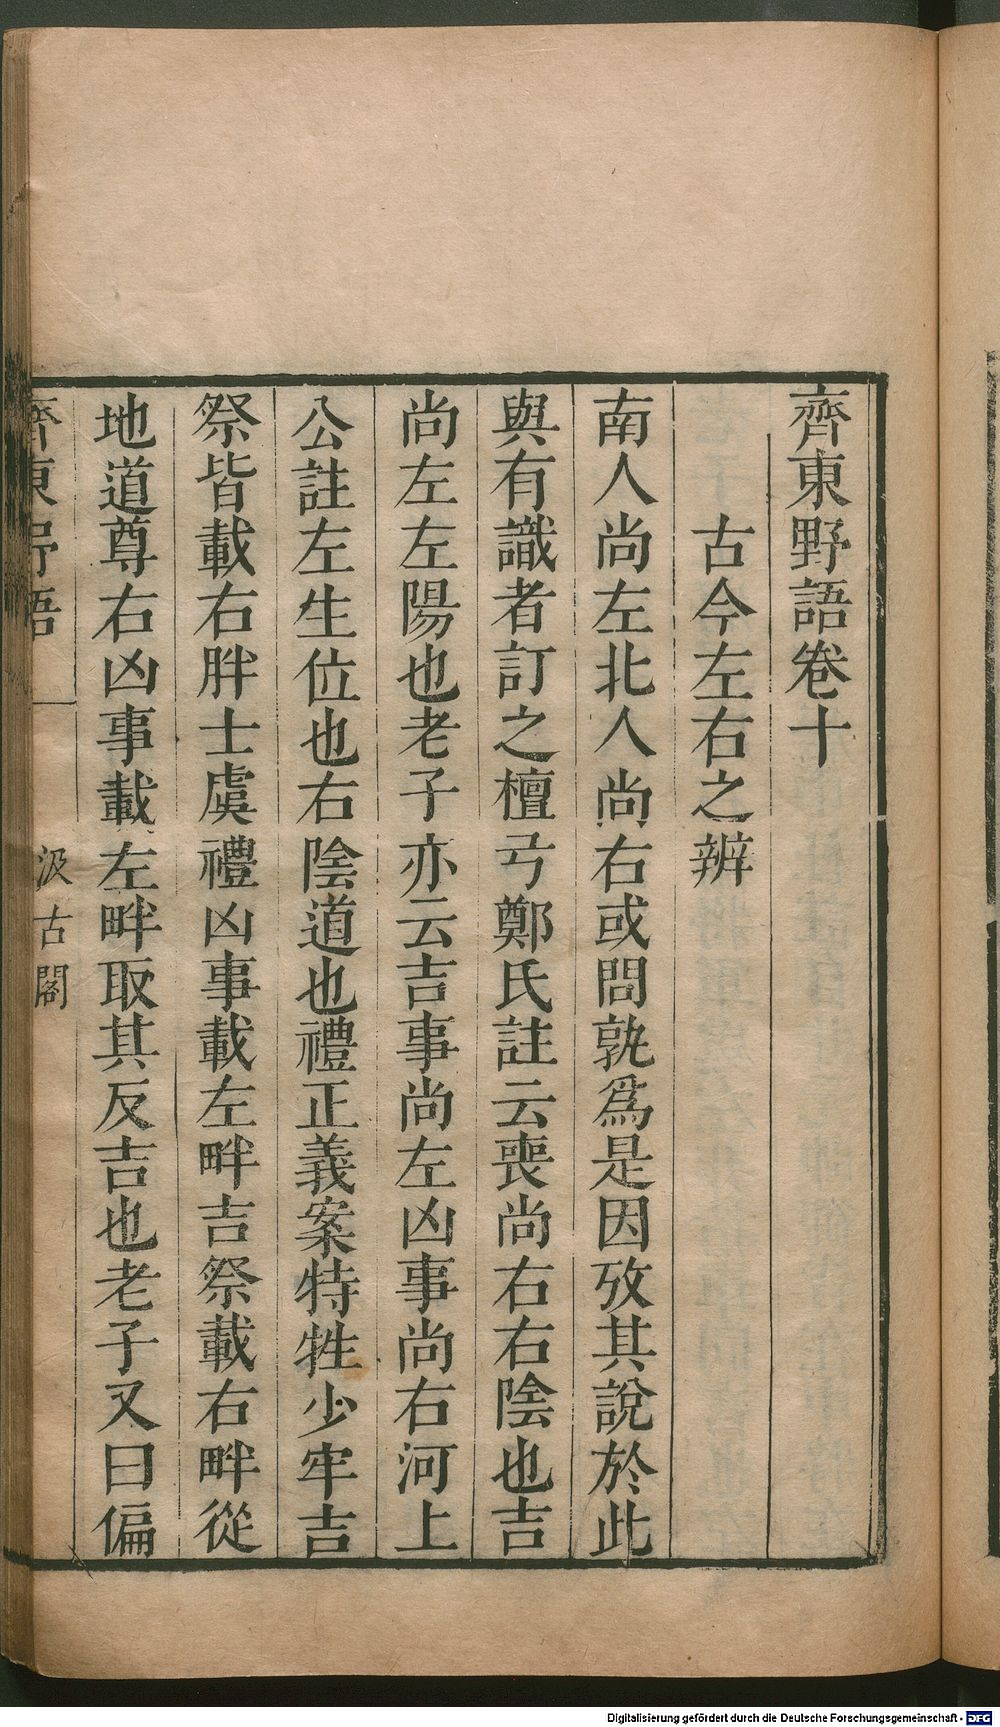 齊東野語卷十
古今左右之辨
南人尚左北人尚右或問孰爲是因攷其說於此
與有識者訂之檀弓鄭氏註云喪尚右右陰也吉
尚左左陽也老子亦云吉事尚左凶事尚右河上
公註左生位也右陰道也禮正義案特牲少牢吉
祭皆載右胖士虞禮凶事載左畔吉祭載右畔從
地道尊右凶事載左畔取其反吉也老子又曰偏
齊東野語 一 汲古閣
Digitalisierung gefördert durch die Deutsche Forschungsgemeinschaft - DFG